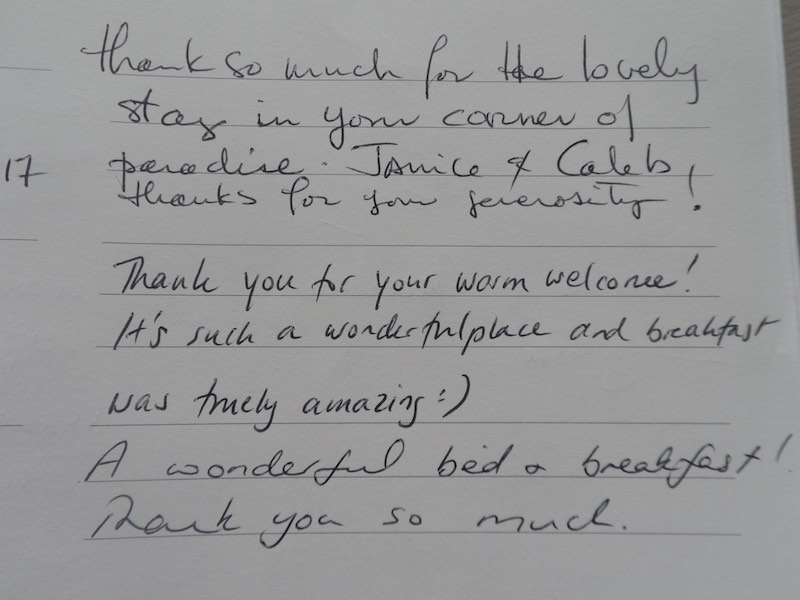 thank so much for the lovely
stay in your corner of
17
paradise. Janice & Caleb,
thanks for your generosity!
Thank you for your warm welcome!
It's such a wonderful place and breakfast
was truely amazing :)
A wonderful bed & breakfast!
Thank you so much.